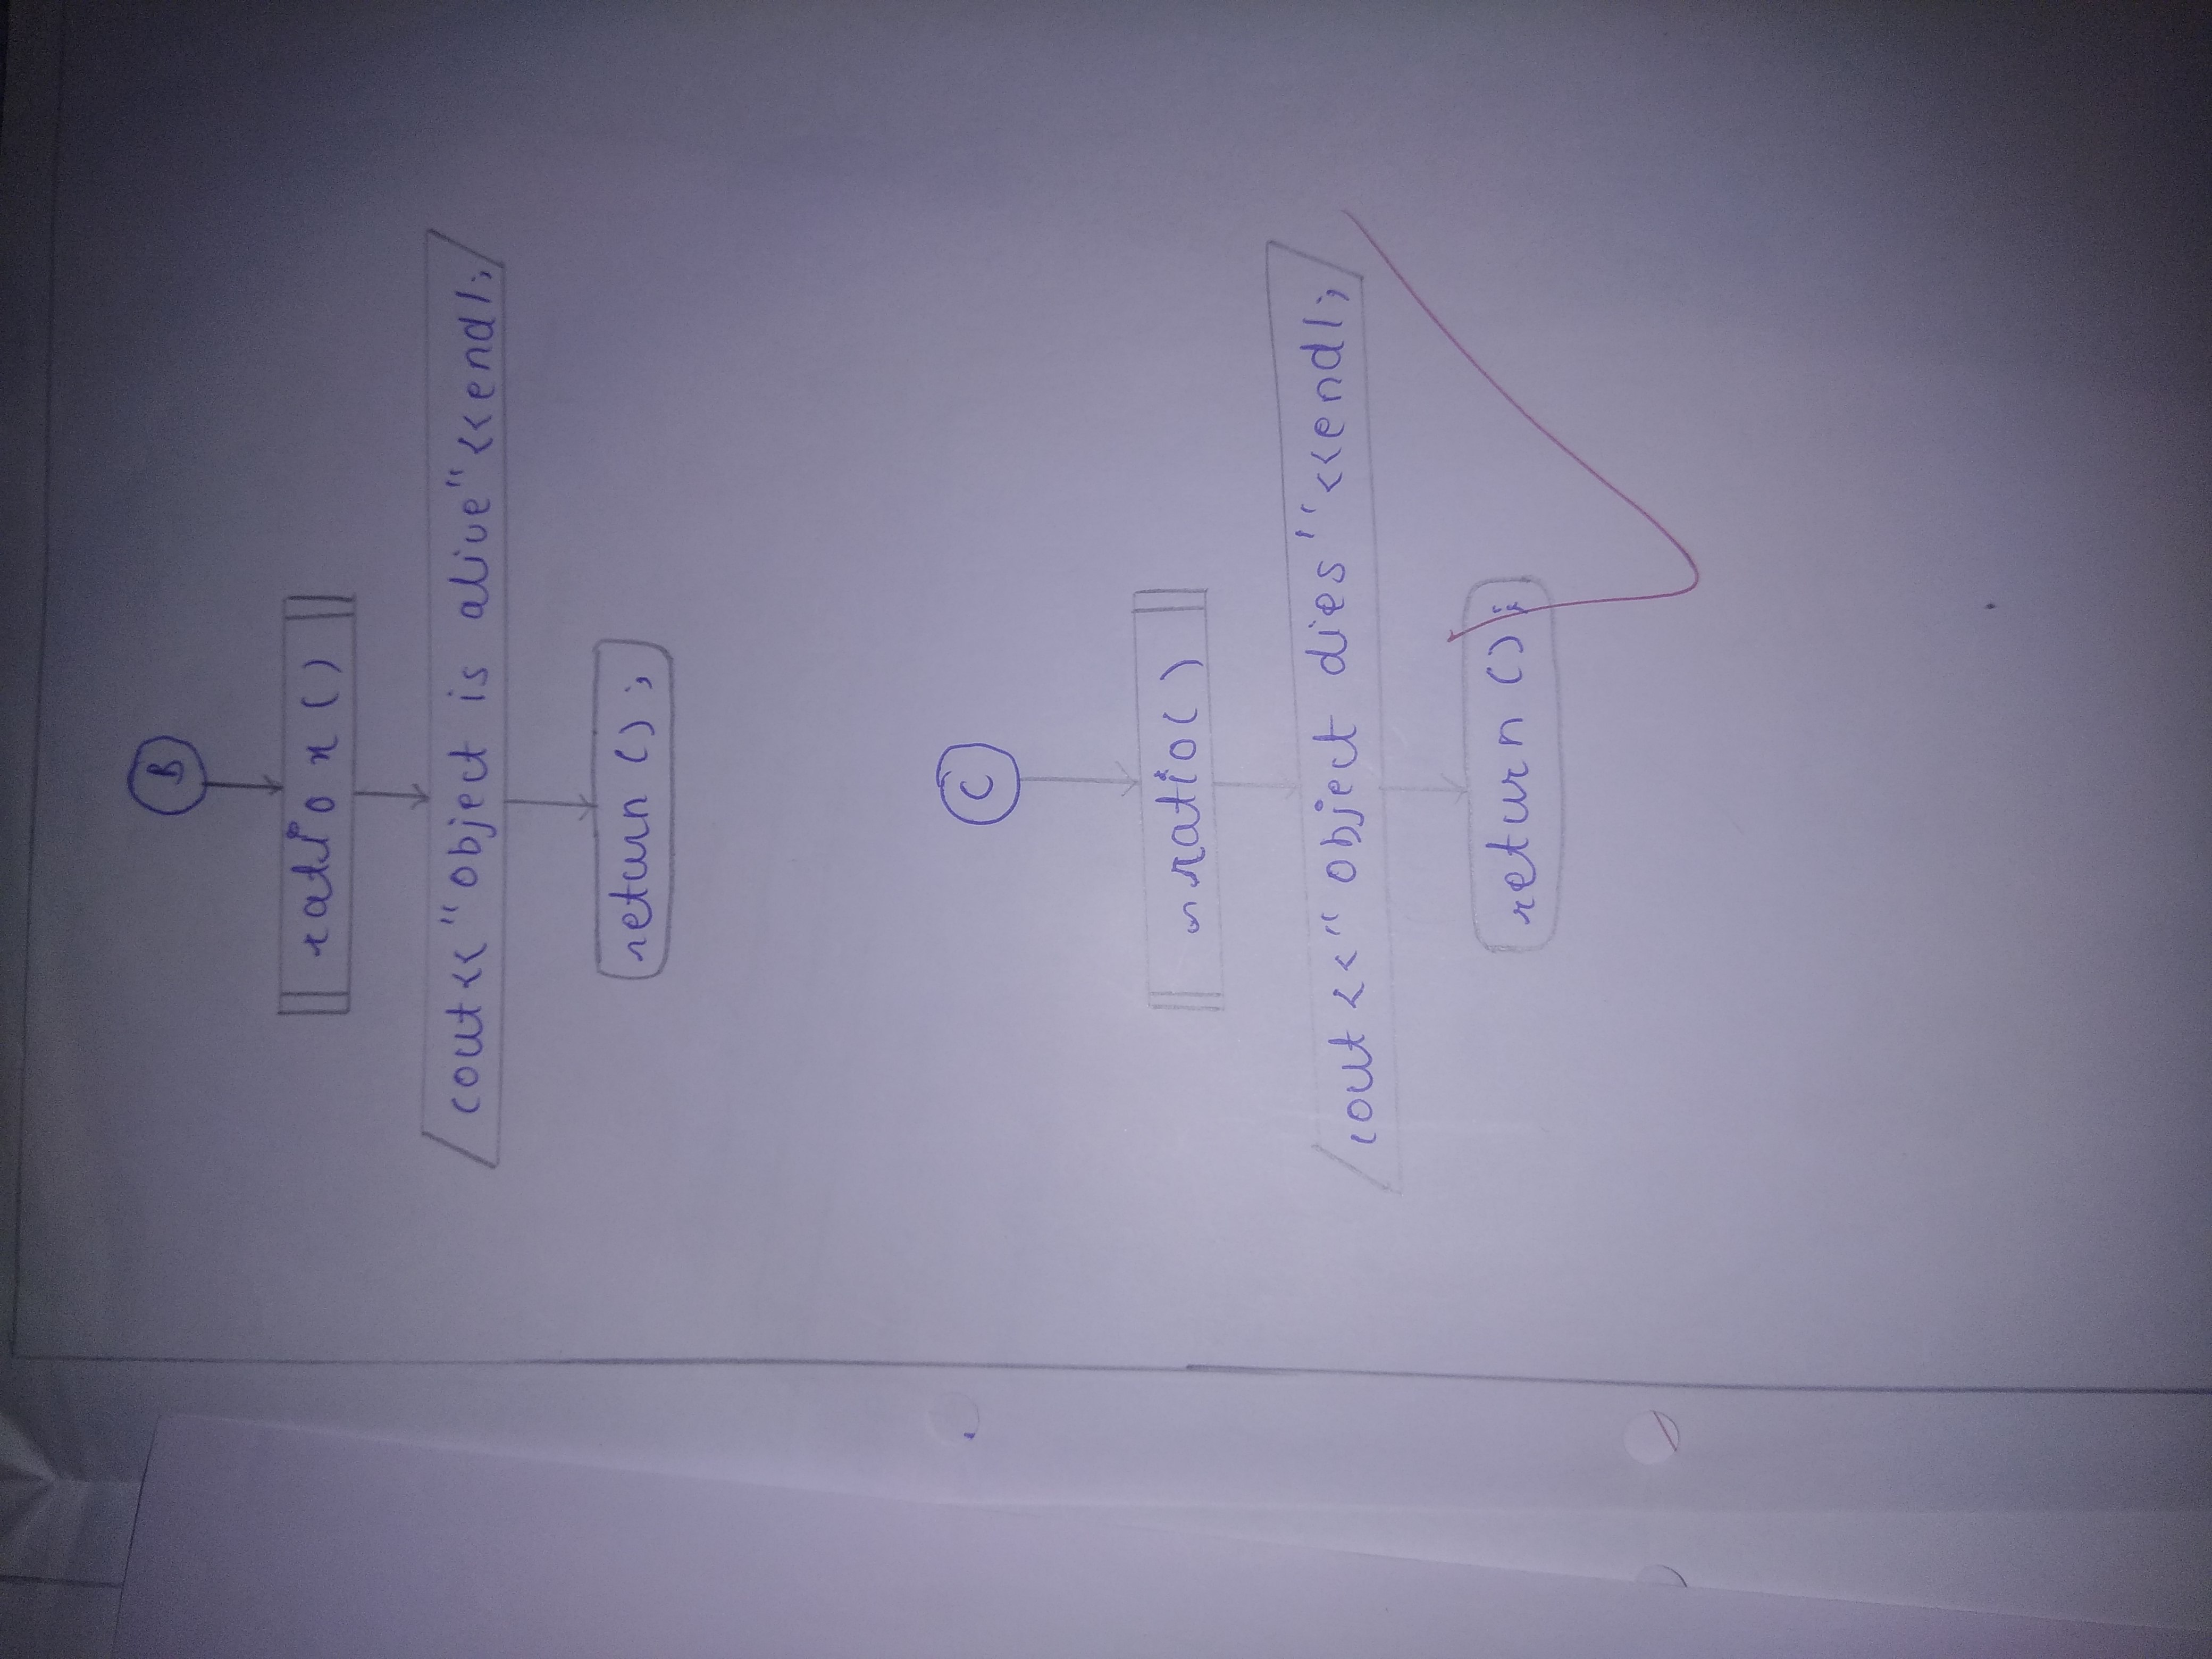 B
ratio x()
cout<<"object is alive"<<endl;
return();
C
~ratio()
cout<<"object dies"<<endl;
return();